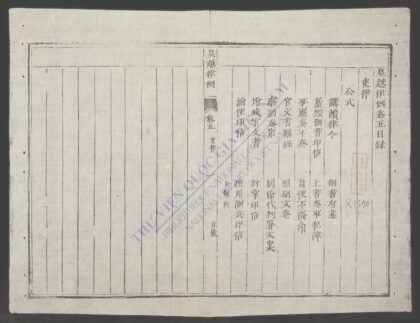 皇越律例卷五目錄
吏律
公式
講讀律令 制書有違
棄毀制書印信 上書奏事犯諱
事應奏不奏 出使不復命
官文書稽程 照刷文卷
磨勘卷宗 同僚代判署文案
增減官文書 封掌印信
漏使印信 擅用調兵印信
皇越律例 卷五 目錄
THƯ VIỆN QUỐC GIA VIỆT NAM